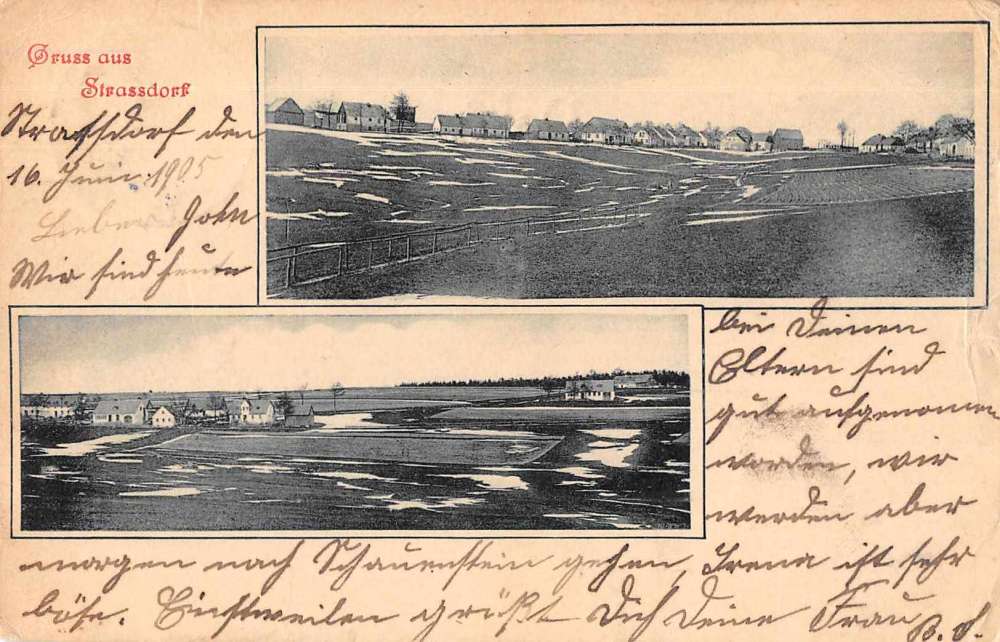 Gruss aus
Strassdorf
Strassdorf den
16. Juni 1905
Lieber John
Wir sind heute
bei Deinen
Eltern sind
gut aufgenomen
worden, wir
werden aber
morgen nach Schauenstein gehen, Irena ist sehr
böse. Einstweilen grüßt Dich Deine Frau